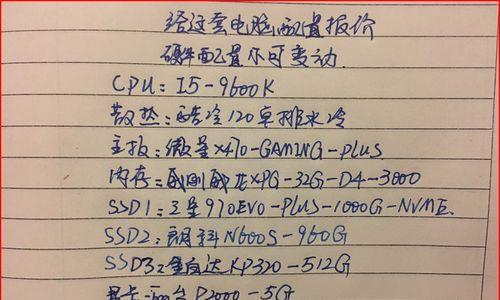 给这套电脑配置报价
硬件配置不可变动
CPU: I5-9600K
散热:酷冷120单排水冷
主板:微星X470-GAMING-PLUS
内存:威刚威龙XPG-32G-D4-3000
SSD1:三星970EVO-PLUS-1000G-NVME.
SSD2:朗科N600S-960G
SSD3:金百达KP320-512G
显卡-丽台P2000-5G